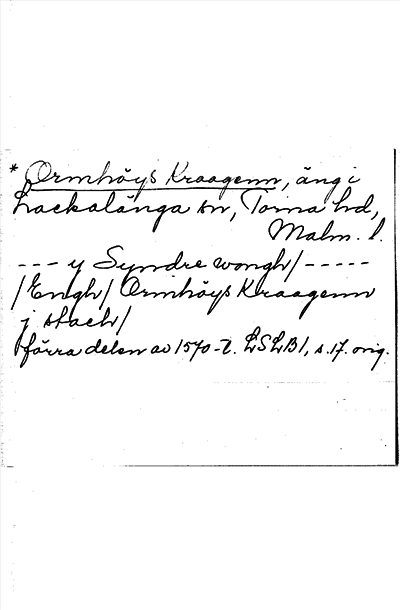 * Ormhöys Kraagenn, äng i
Lackalänga sn, Torna hd,
Malm. l.
--- y Syndre wongh/-----
/Engh/ Ormhöys Kraagenn
j stach/
förra delen av 1570-t. LSLB1, s.17. orig.